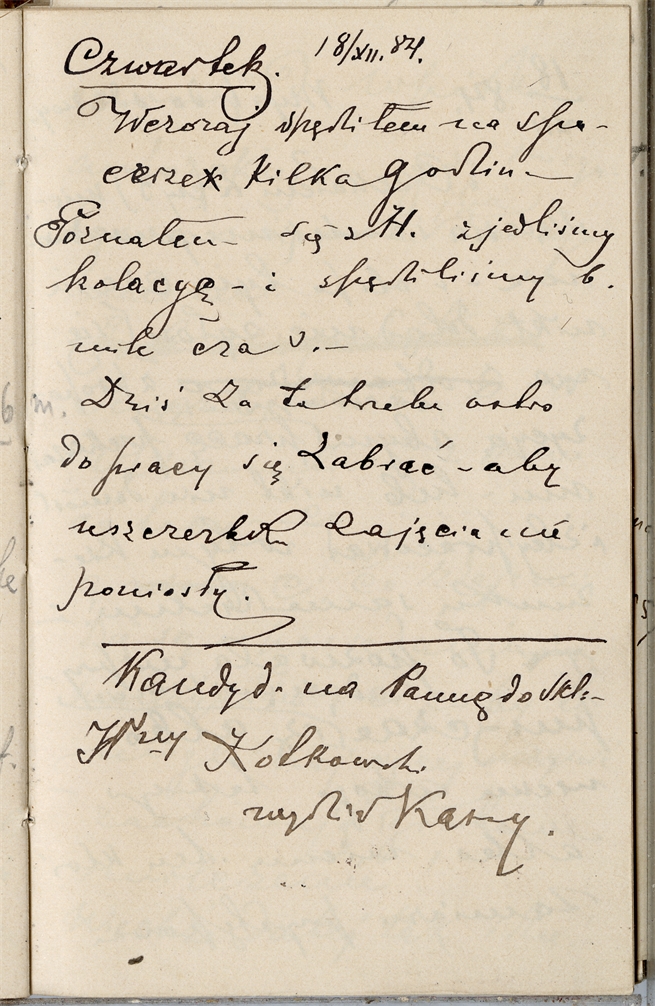 Czwartek. 18/XII. 84.
Wczoraj spędziłem na spa-
cerze kilka godzin. —
Poznałem — się z H. zjedliśmy
kolacyę — i spędziliśmy b.
miło czas. —
Dziś za to trzeba ostro
do pracy się zabrać — aby
uszczerbku zajęcia nie
poniosły.
Kandyd. na Pannę do skle-
Kotkowski
Kasy.